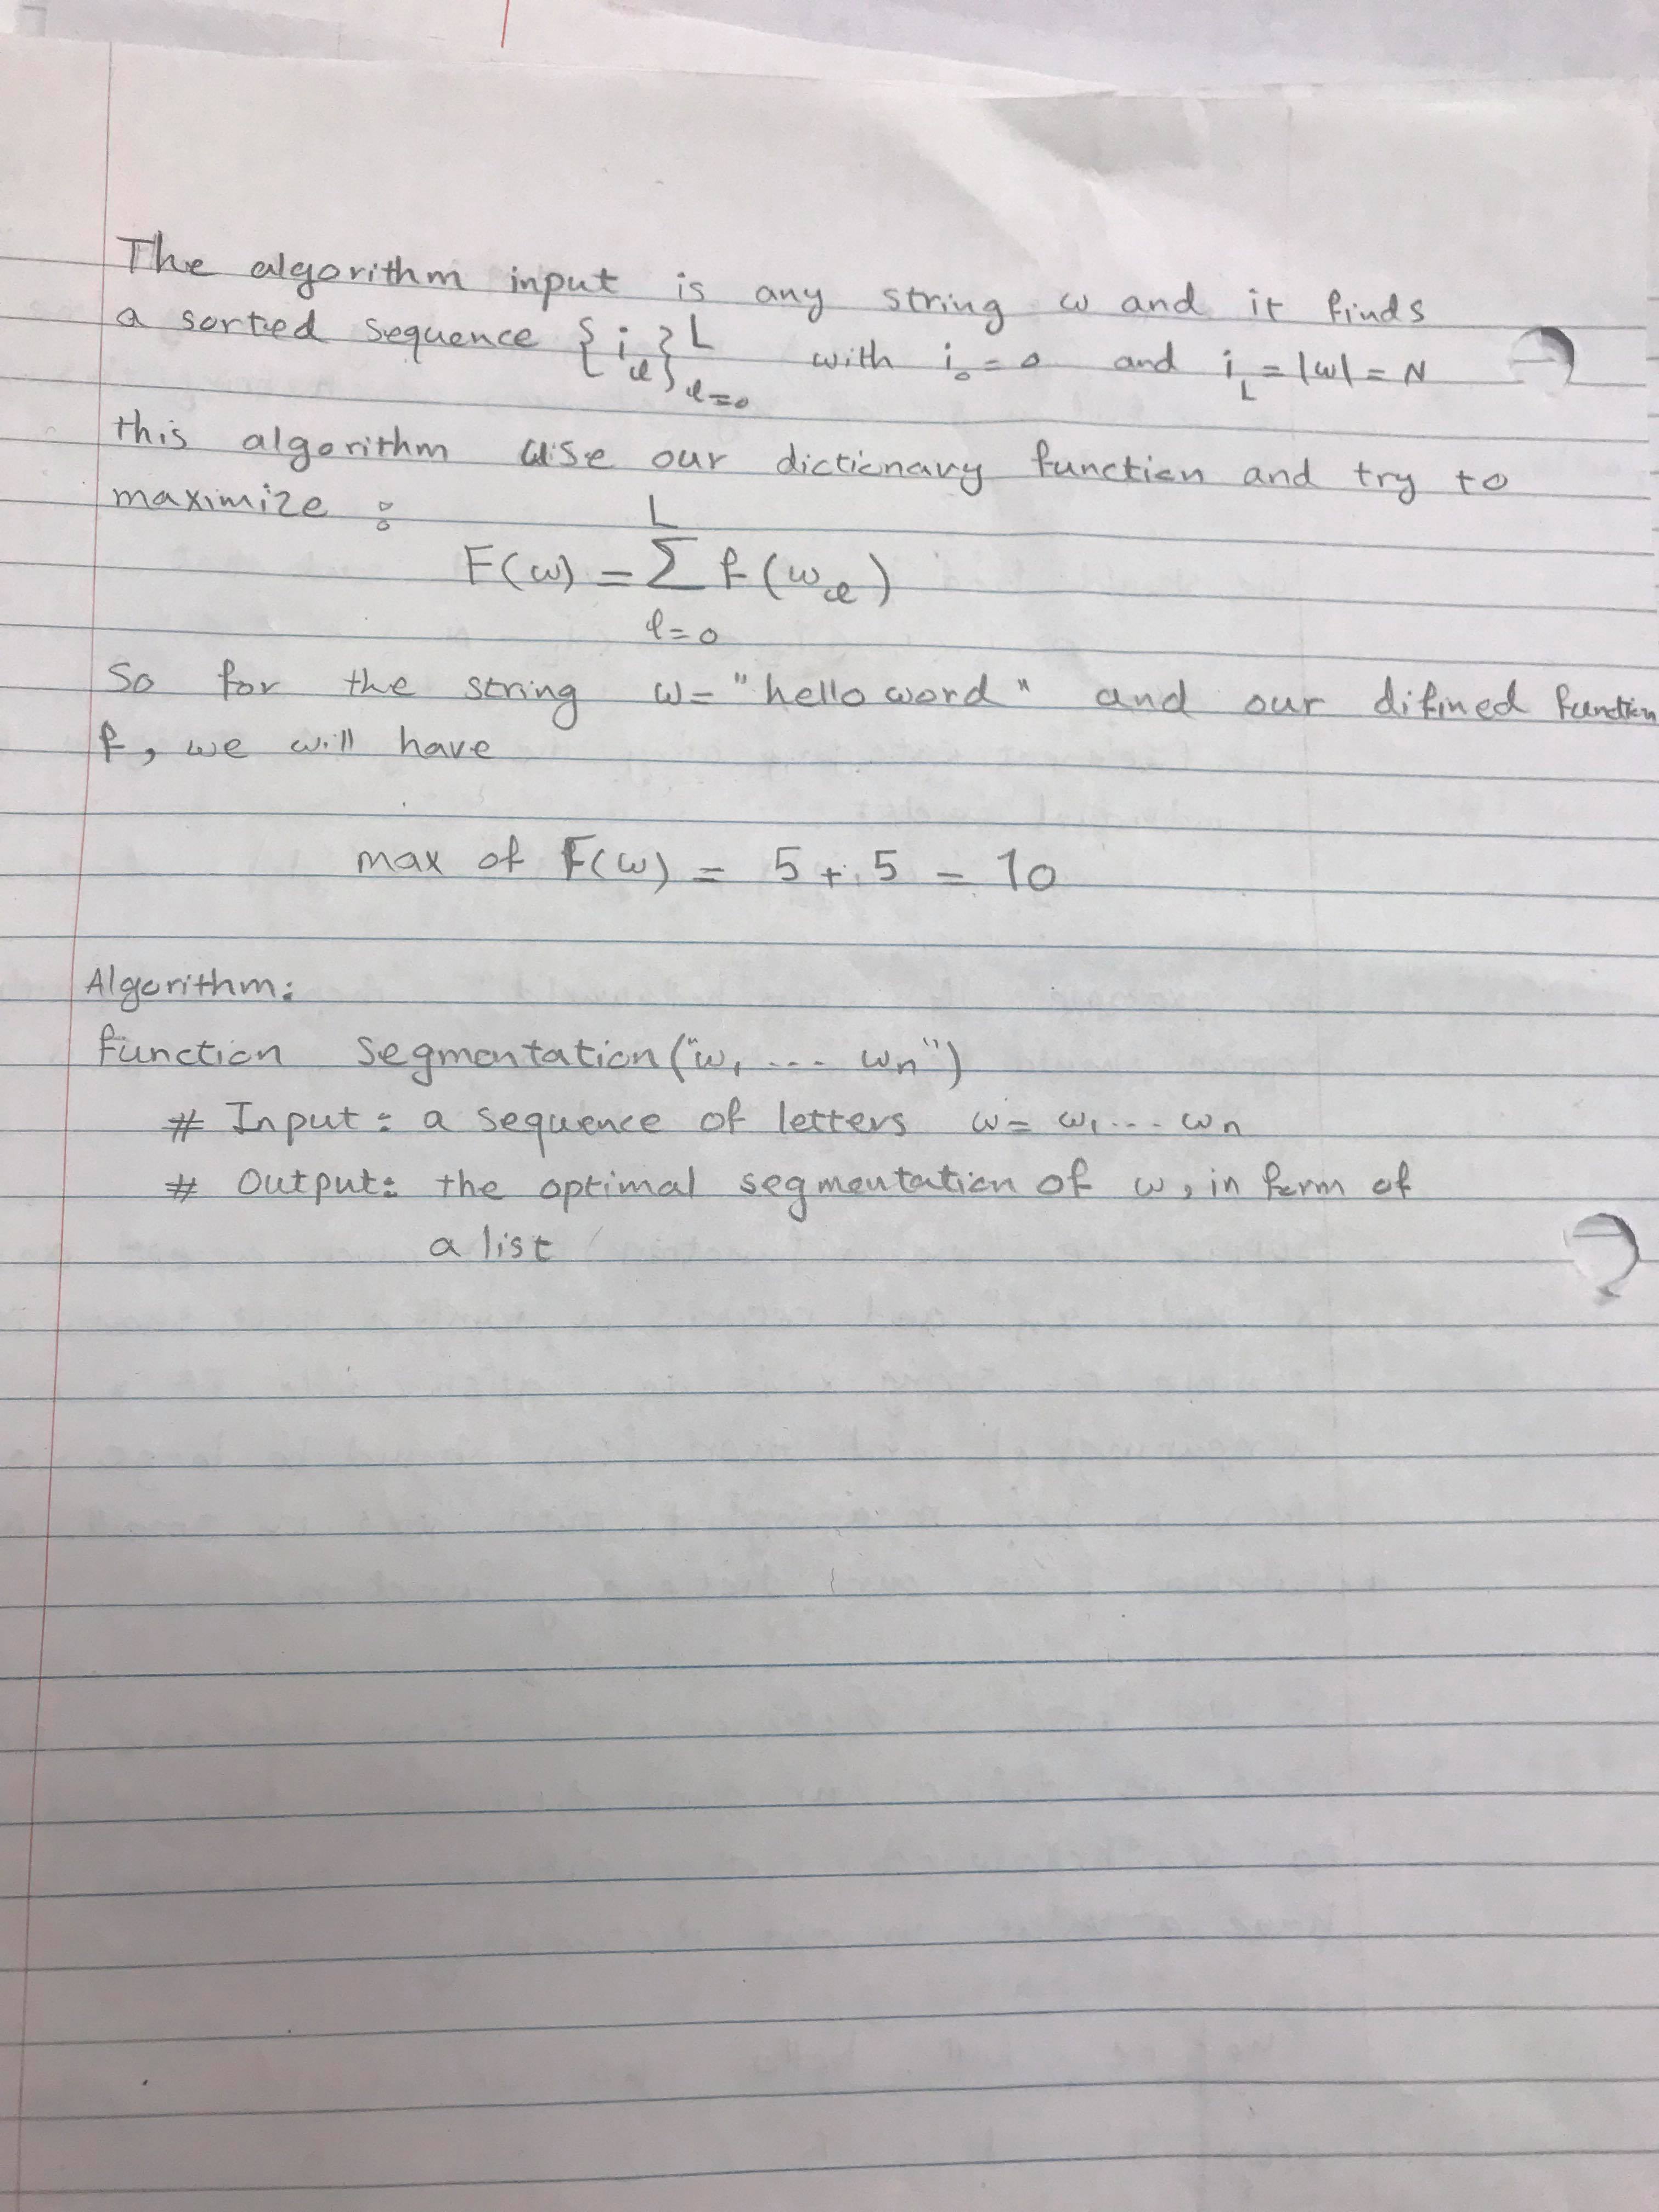 The algorithm input is any string w and it finds
a sorted sequence {i_ℓ}^L_{ℓ=0} with i_0 = 0 and i_L = |w| = N
this algorithm use our dictionary function and try to
maximize :
F(w) = Σ^L_{ℓ=0} f(w_ℓ)
So for the string w= "helloword" and our difined function
f, we will have
max of F(w) = 5 + 5 = 10
Algorithm:
function segmentation("w_1 ... w_n")
# Input: a sequence of letters w= w_1 ... w_n
# Output: the optimal segmentation of w, in form of
a list